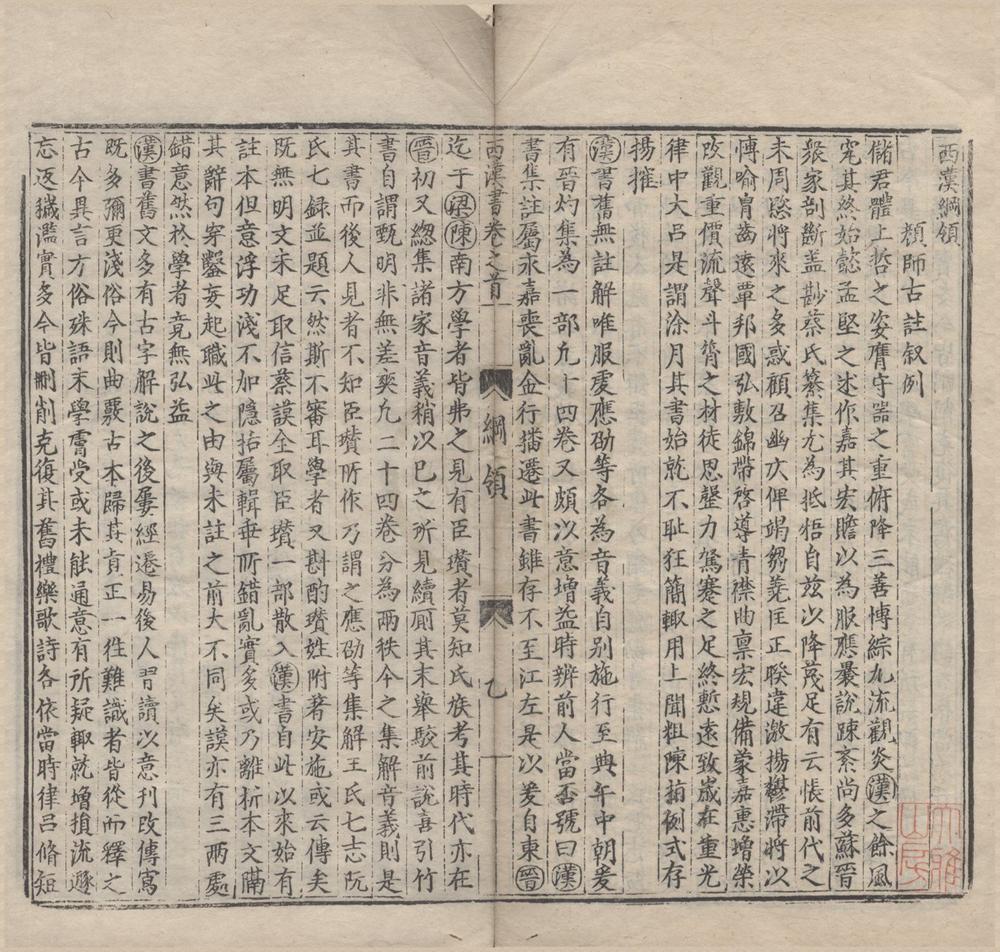 西漢綱領
顏師古註叙例
儲君體上哲之姿膺守噐之重俯降三善博綜九流觀炎漢之餘風
究其然始懿孟堅之述作嘉其宏贍以為服應曩說疎紊尚多蘇晉
衆家剖斷盖尠蔡氏纂集尤為抵牾自兹以降蔑足有云悵前代之
未周愍將來之多惑顧召幽仄俾竭芻蕘匡正睽違激揚鬱滯將以
博喻胄齒遠覃邦國弘敷錦帶啓導青襟曲禀宏規備蒙嘉惠增榮
改觀重價流聲斗筲之材徒思罄力駑蹇之足終慙遠致嵗在重光
律中大吕是謂涂月其書始就不恥狂簡輙用上聞粗陳指例式存
揚搉
漢書舊無註解唯服䖍應劭等各為音義自别施行至典午中朝爰
有晉灼集為一部凢十四卷又頗以意增益時辨前人當否號曰漢
書集註屬永嘉喪亂金行播遷此書雖存不至江左是以爰自東晉
西漢書卷之首
綱領
乙
一
迄于梁陳南方學者皆弗之見有臣瓚者莫知氏族考其時代亦在
晉初又緫集諸家音義稍以已之所見續厠其末舉駁前說喜引竹
書自謂甄明非無差爽凢二十四卷分為兩袟今之集解音義則是
其書而後人見者不知臣瓚所作乃謂之應劭等集解王氏七志阮
氏七録並題云然斯不審耳學者又斟酌瓚姓附著安施或云傅矣
既無明文未足取信蔡謨全取臣瓚一部散入漢書自此以來始有
註本但意浮功淺不加隱括屬輯乖所錯亂實多或乃離析本文隔
其辭句穿鑿妄起職此之由與未註之前大不同矣謨亦有三兩處
錯意然於學者竟無弘益
漢書舊文多有古字解說之後屢經遷易後人習讀以意刋改傳寫
既多彌更淺俗今則曲覈古本歸其真正一徃難識者皆從而釋之
古今異言方俗殊語末學膚受或未能通意有所疑輙就增損流遯
忘返穢濫實多今皆刪削克復其舊禮樂歌詩各依當時律吕脩短